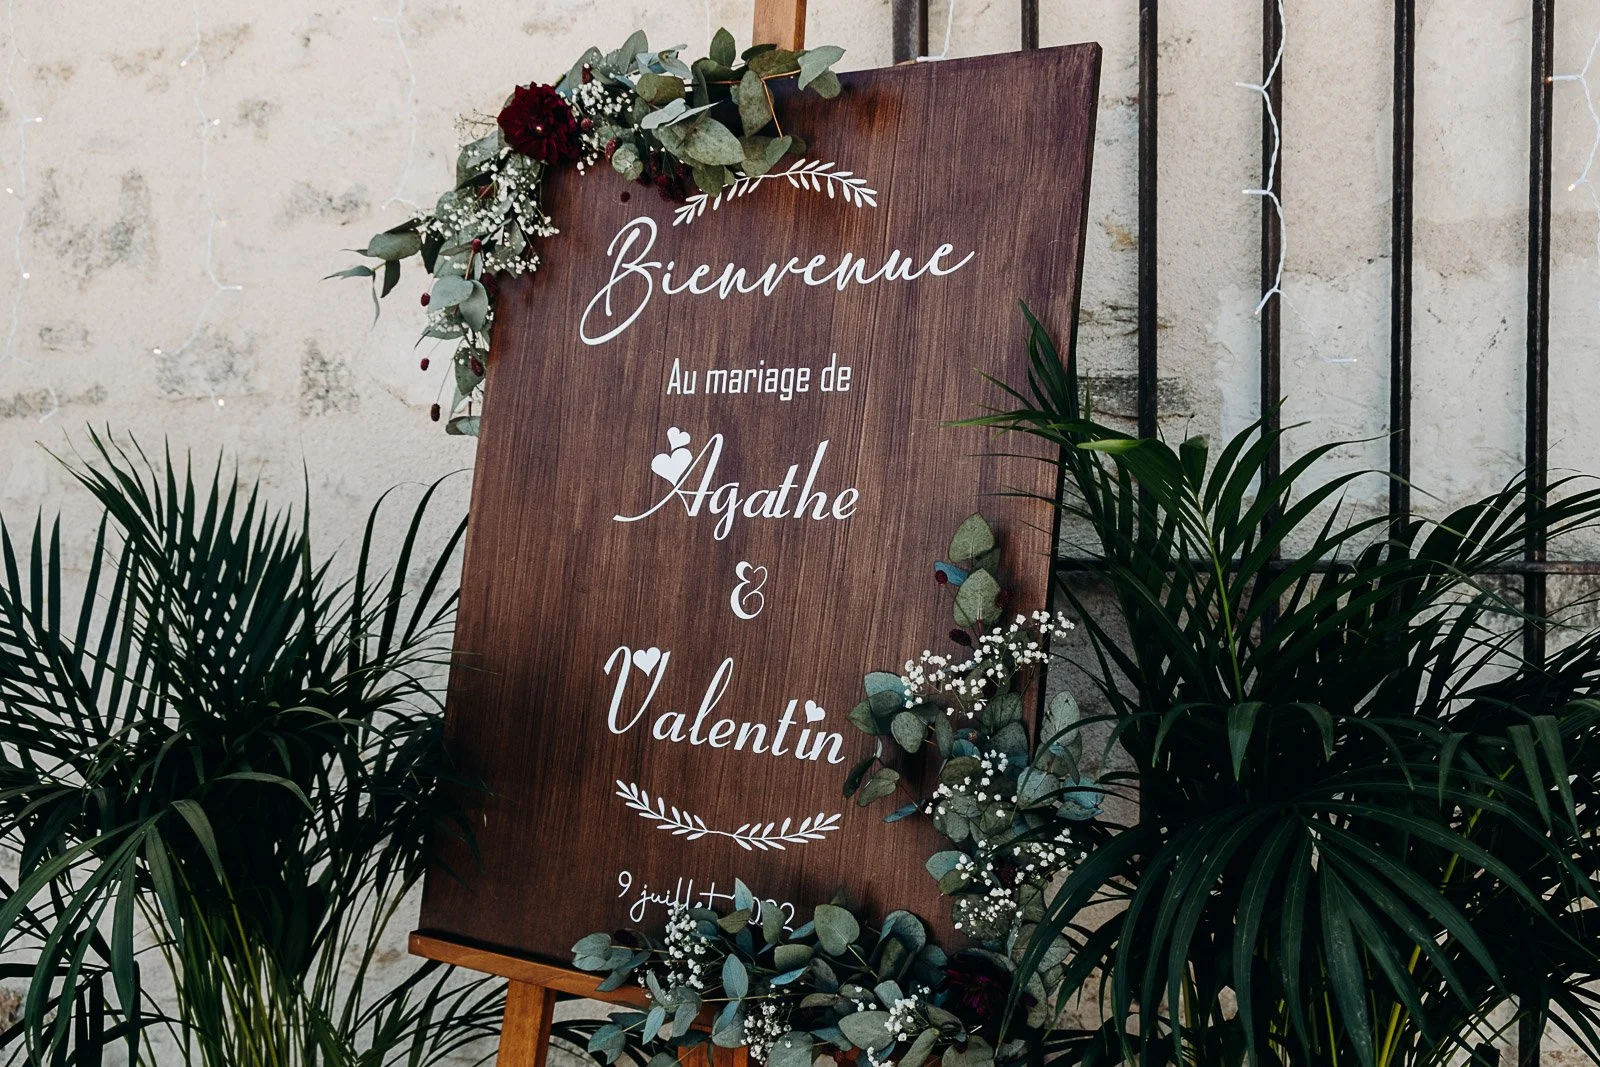 Bienvenue
Au mariage de
Agathe
&
Valentin
9 juillet 2022